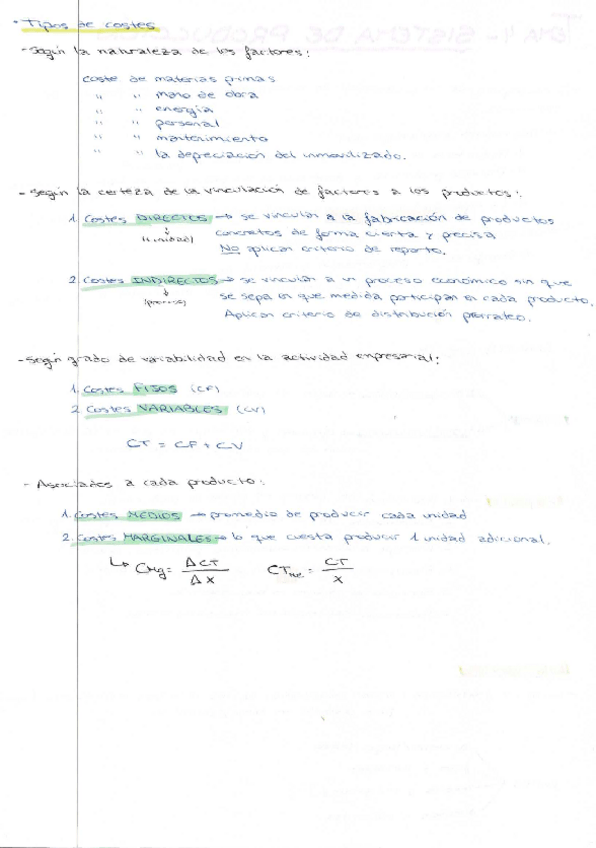 · Tipos de costes
- Según la naturaleza de los factores:
coste de materias primas
" " mano de obra
" " energía
" " personal
" " mantenimiento
" " la depreciación del inmovilizado.
- Según la certeza de la vinculación de factores a los productos:
1. Costes DIRECTOS → se vinculan a la fabricación de productos
(unidad) concretos de forma cierta y precisa
No aplican criterio de reparto.
2. Costes INDIRECTOS → se vinculan a un proceso económico sin que
(proceso) se sepa en que medida participan en cada producto.
Aplican criterio de distribución
- Según grado de variabilidad en la actividad empresarial:
1. Costes FIJOS (CF)
2. Costes VARIABLES (CV)
CT = CF + CV
- Asociados a cada producto:
1. Costes MEDIOS → promedio de producir cada unidad
2. Costes MARGINALES → lo que cuesta producir 1 unidad adicional.
↳ CMg = ΔCT / ΔX CTMe = CT / X